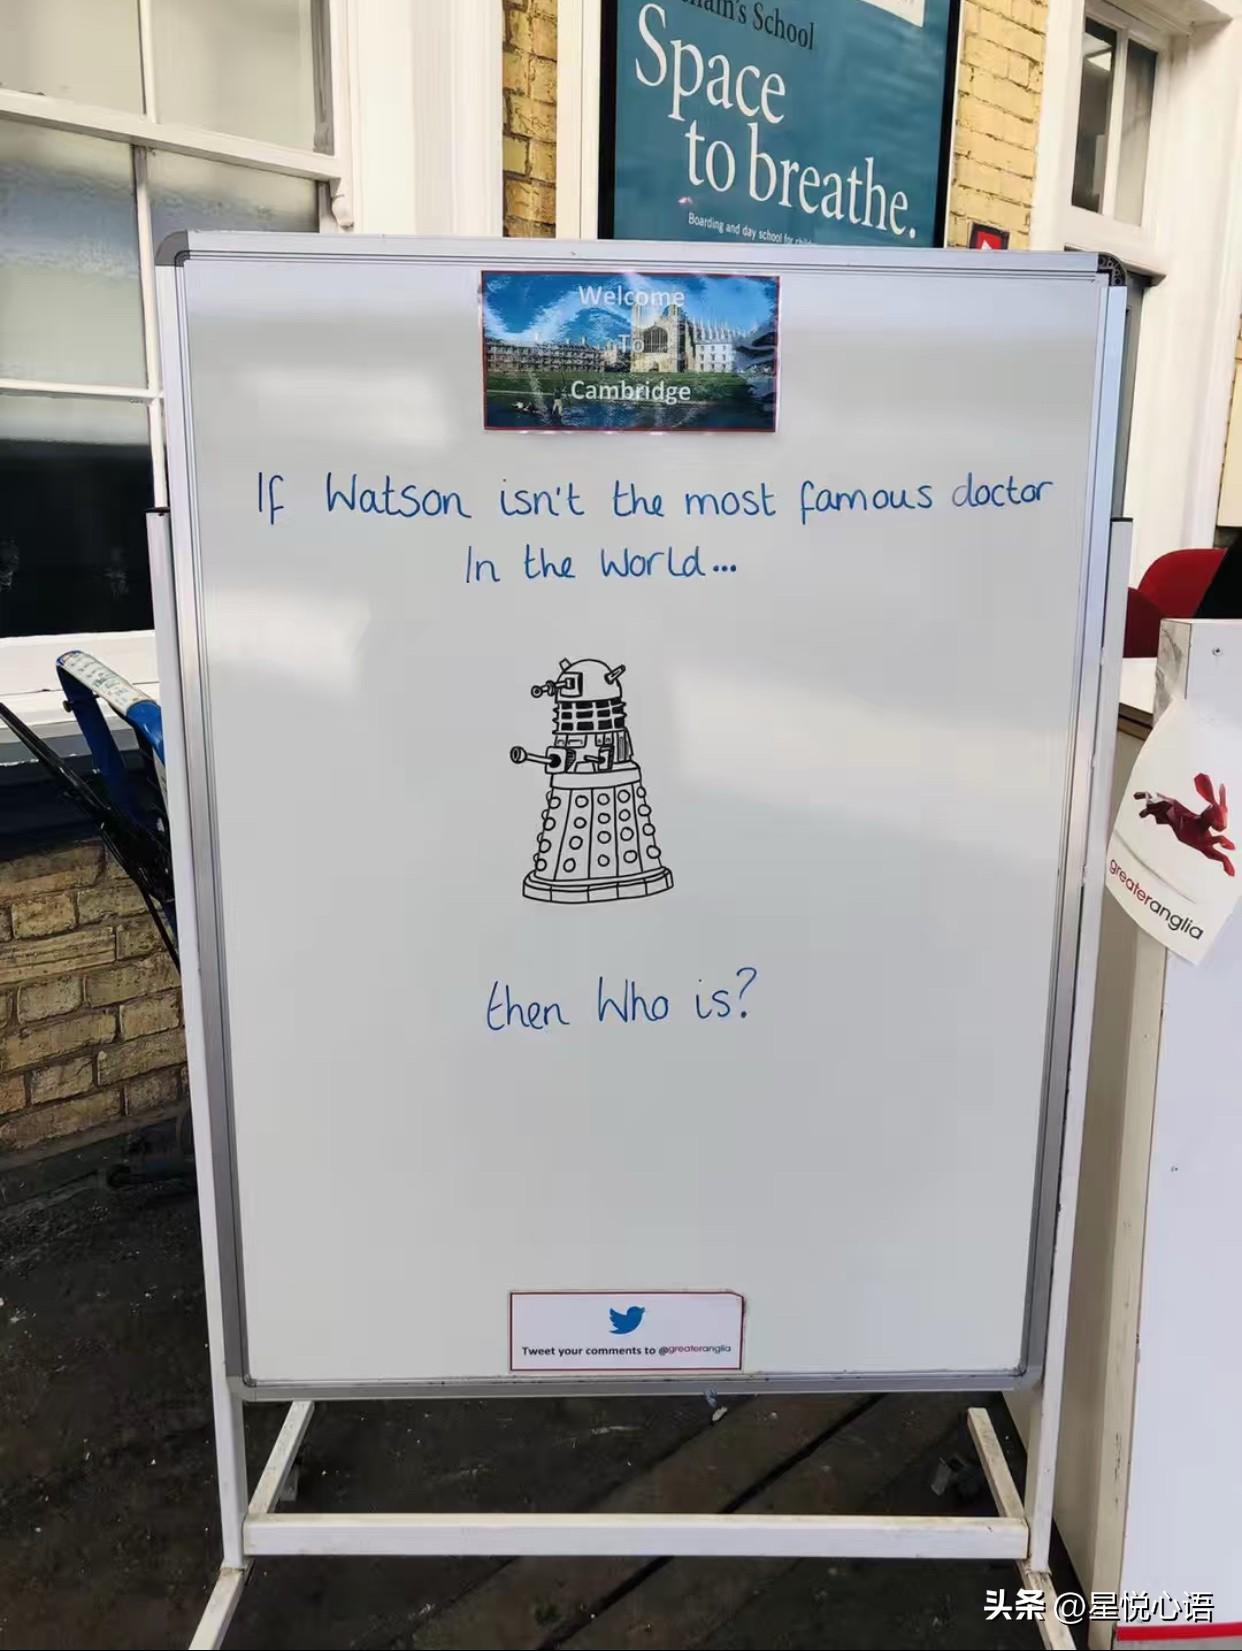 Space
to breathe.
Boarding and day school for
Welcome
To
Cambridge
If Watson isn't the most famous doctor
In the World...
then Who is?
Tweet your comments to @greateranglia
greateranglia
头条 @星悦心语